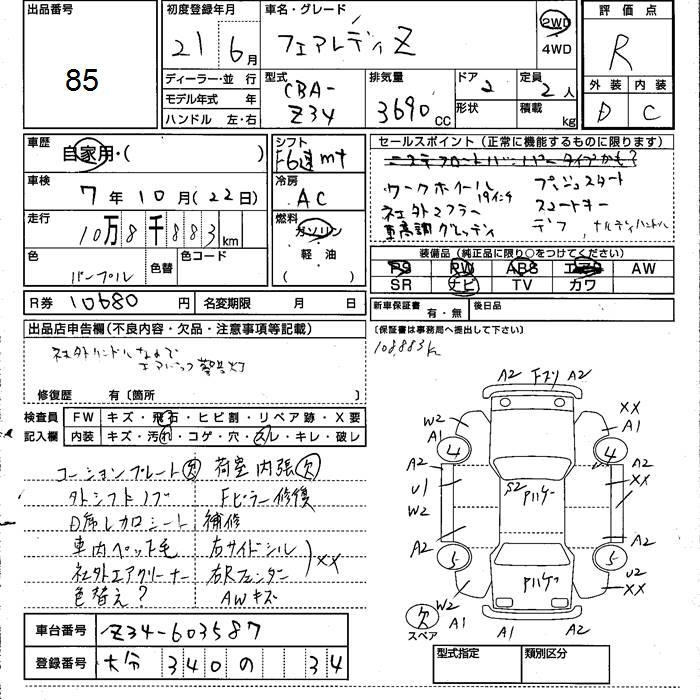 出品番号
85
初度登録年月
21 6月
車名・グレード
フェアレディZ
2WD
4WD
評価点
R
外装 内装
D C
ディーラー・並行
モデル年式 年
ハンドル 左・右
型式
CBA-
Z34
排気量
3690cc
ドア
2
形状
定員
2人
積載
kg
車歴
自家用・( )
車検
7年10月(22日)
走行
10万8千883km
色
パープル
色替
色コード
シフト
F6速mt
冷房
AC
燃料
ガソリン
軽油
( )
セールスポイント(正常に機能するものに限ります)
ワークホイール 19インチ
プッシュスタート
社外マフラー
スマートキー
車高調
デフ
ナルディハンドル
装備品(純正品に限り○をつけてください)
PS PW ABS AW
SR ナビ TV カワ
R券 10680円
名変期限 月 日
新車保証書 有・無
後日品
(保証書は事務局へ提出して下さい)
108,883k
出品店申告欄(不良内容・欠品・注意事項等記載)
社外ハンドルなので
エアバック警告灯
修復歴 有〔箇所 〕
検査員
記入欄
FW キズ・飛石・ヒビ割・リペア跡・X要
内装 キズ・汚れ・コゲ・穴・スレ・キレ・破レ
コーションプレート欠
荷室内張欠
外シフトノブ
Fピラー修復
D席レカロシート
補修
車内ペット毛
右サイドシル
XX
社外エアクリーナー
右Rフェンダー
色替え?
AWキズ
車台番号 Z34-603587
登録番号 大分 340 の 34
A2 Fズリ A2
W2 XX
A1 A1
4 4
A2 A2
U1 S2 Pハゲー XX
W2 W2
A2 A2
5 5
Pハゲー U2
W2 XX
欠
スペア
A1 A1 A2
型式指定 類別区分